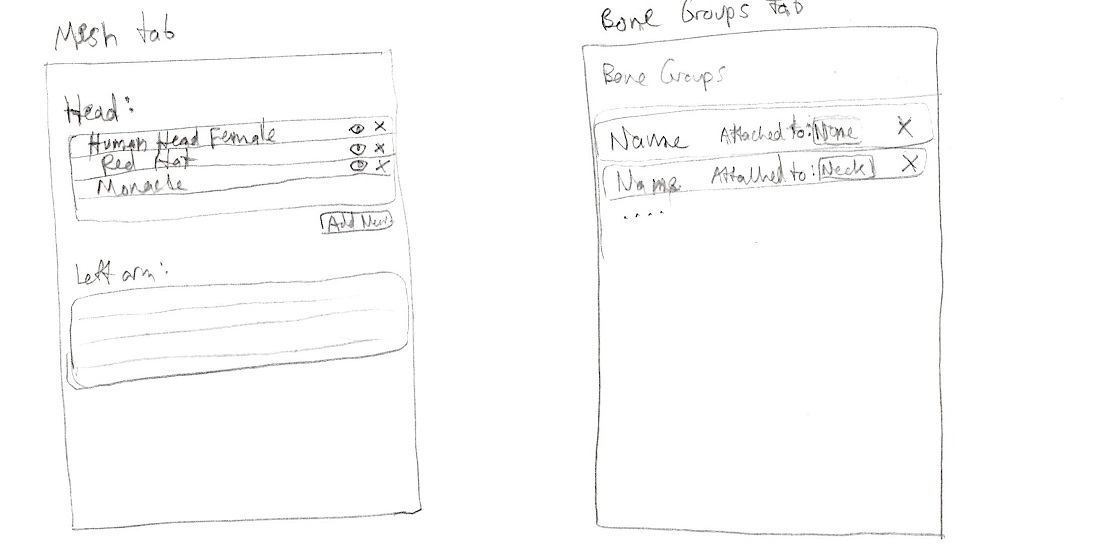 Mesh tab
Head:
Human Head Female X
Red Hat X
Monacle X
Add New
Left arm:
Bone Groups tab
Bone Groups
Name Attached to: None X
Name Attatched to: Neck X
....